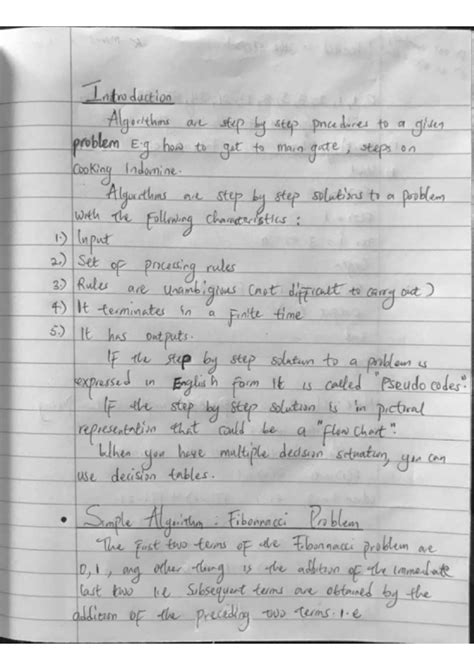 Introduction
Algorithms are step by step procedures to a given
problem E.g how to get to main gate, steps on
cooking Indomine.
Algorithms are step by step solutions to a problem
with the following characteristics:
1.) Input
2.) Set of processing rules
3.) Rules are unambigious (not difficult to carry out)
4.) It terminates in a finite time
5.) It has outputs.
If the step by step solution to a problem is
expressed in English form it is called "Pseudo codes".
If the step by step solution is in pictoral
representation that could be a "flow chart".
When you have multiple decision situation, you can
use decision tables.
• Simple Algorithm: Fibonnacci Problem
The first two terms of the Fibonnacci problem are
0, 1, any other thing is the addition of the immediate
last two i.e Subsequent terms are obtained by the
addition of the preceding two terms i.e